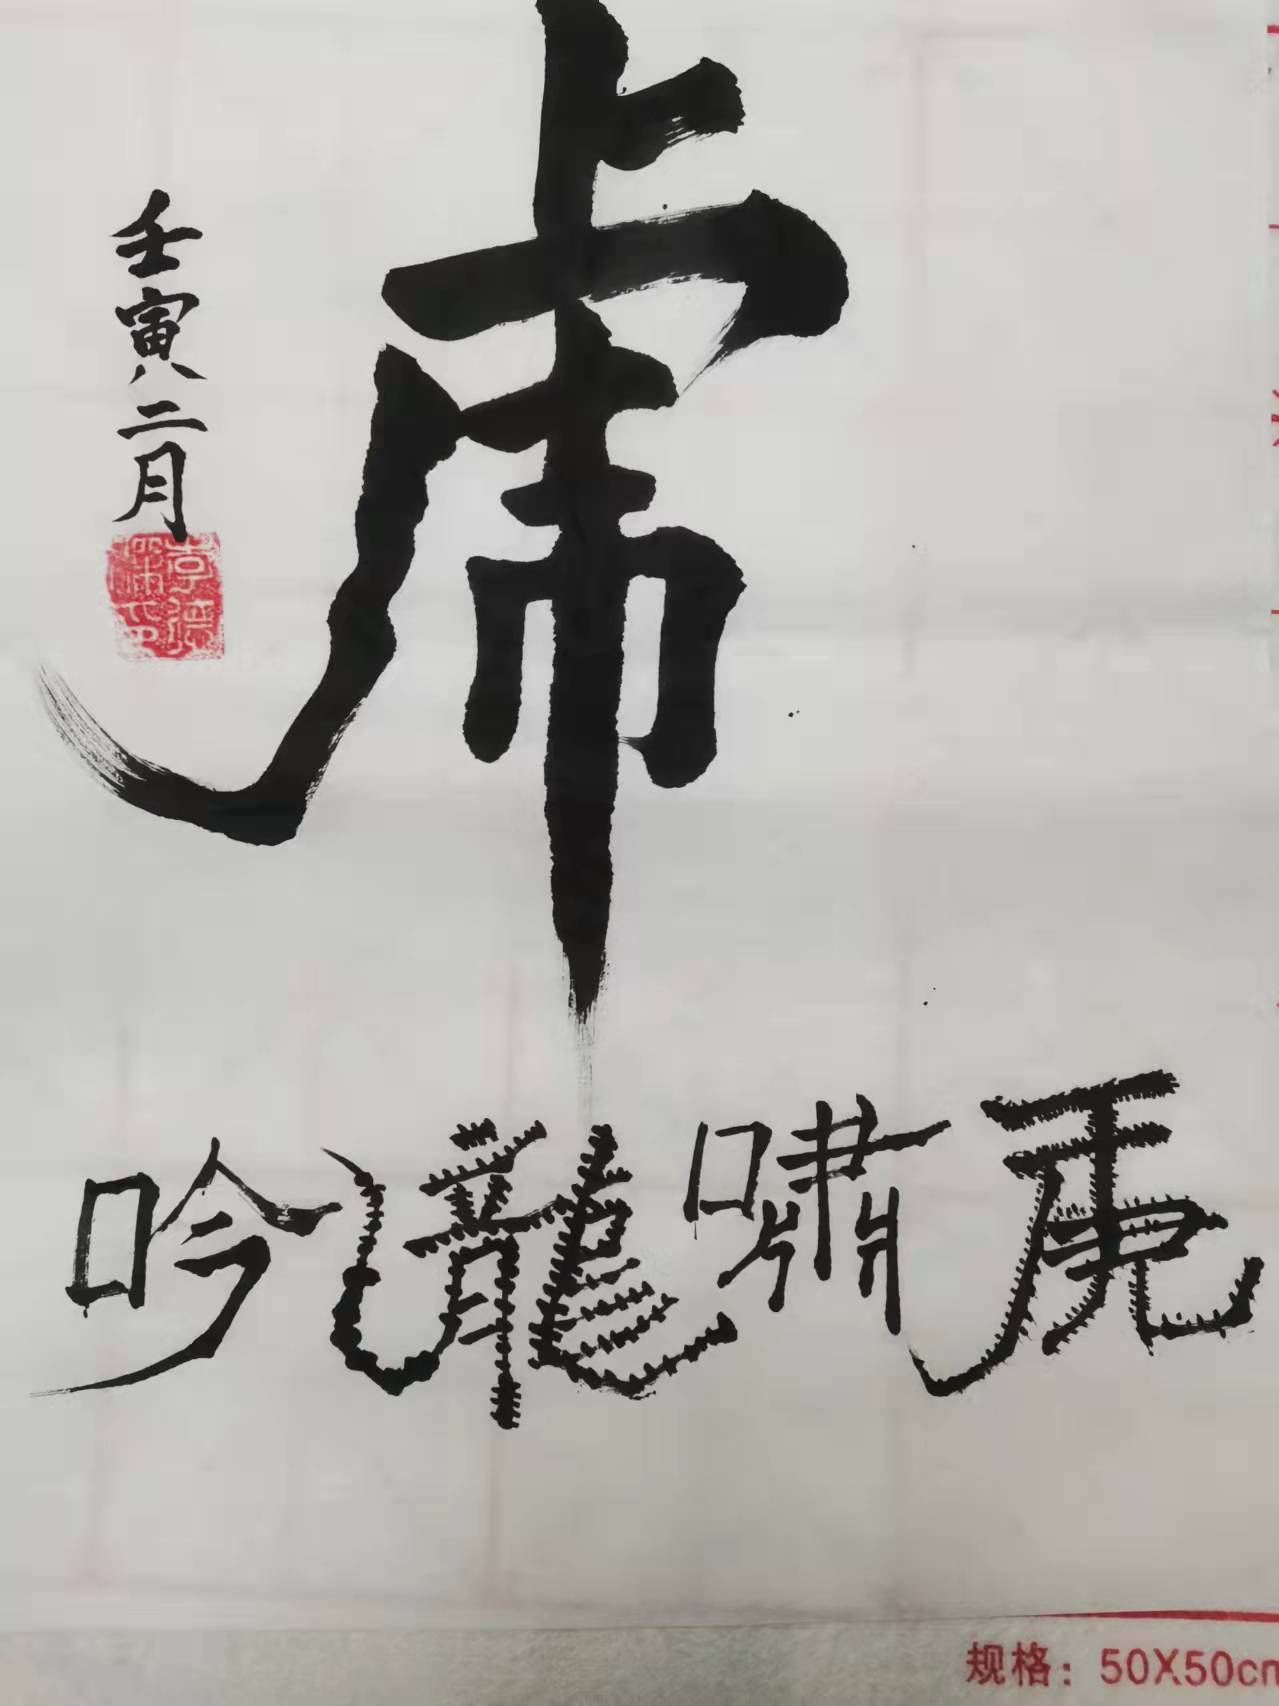 虎
壬寅二月
虎啸龍吟
规格：50X50cm